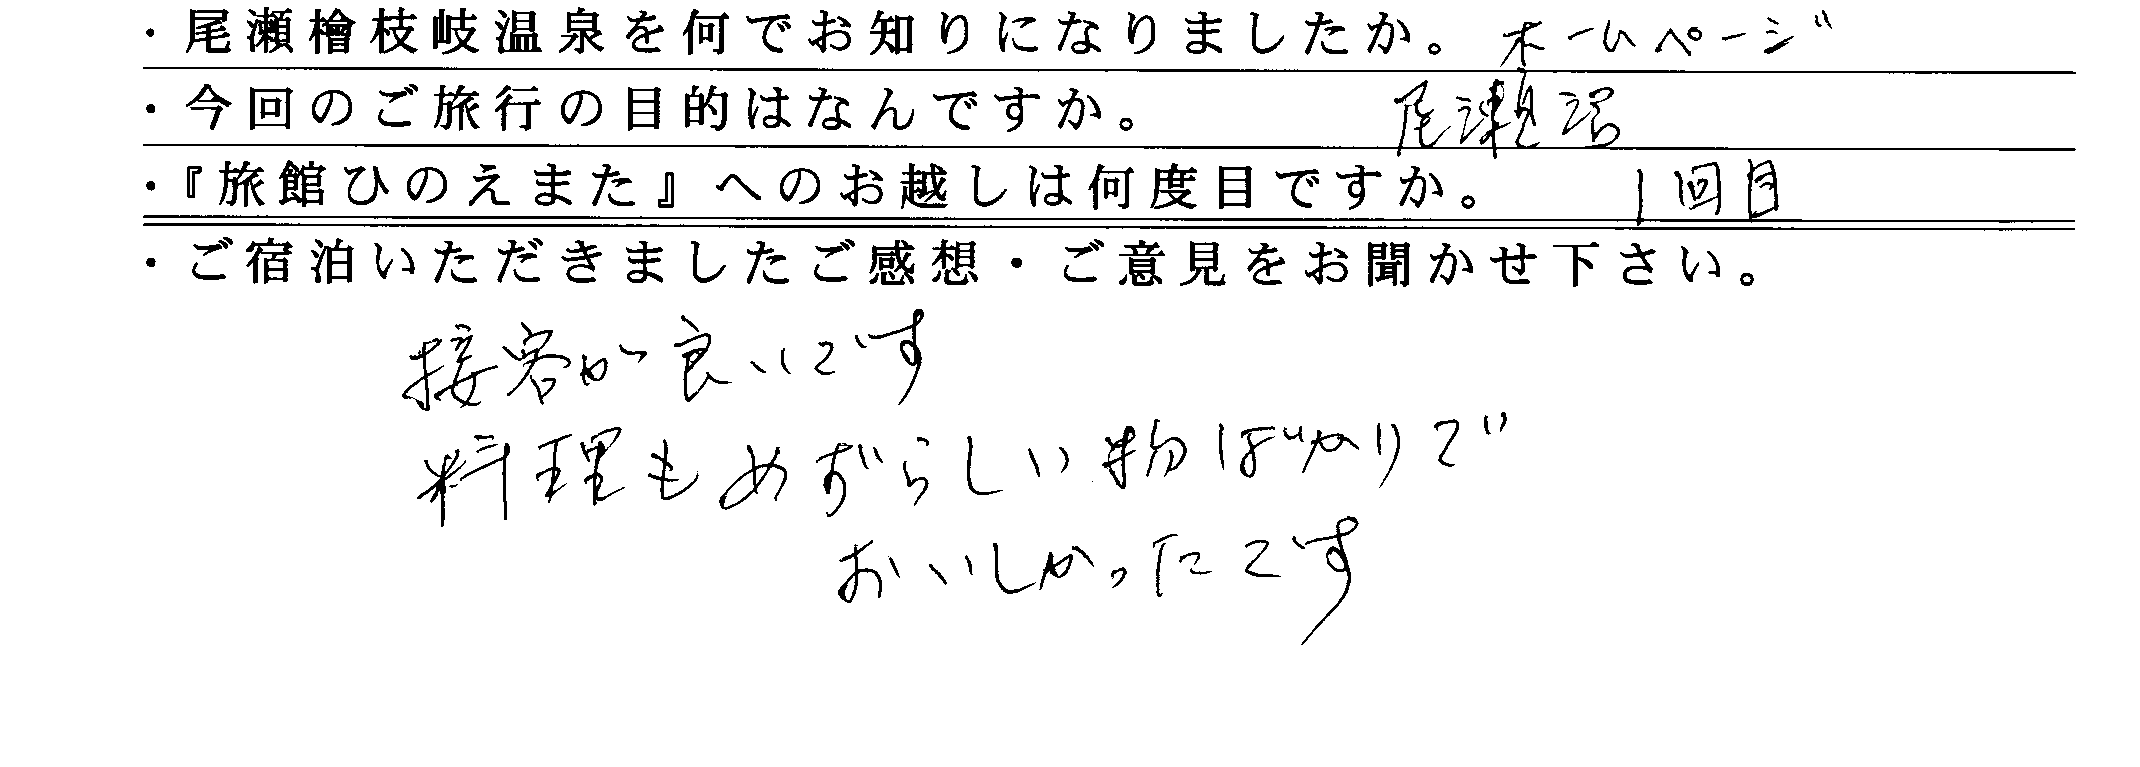 ・尾瀬檜枝岐温泉を何でお知りになりましたか。 ホームページ
・今回のご旅行の目的はなんですか。 尾瀬沼
・『旅館ひのえまた』へのお越しは何度目ですか。 1回目
・ご宿泊いただきましたご感想・ご意見をお聞かせ下さい。
接客が良いです
料理もめずらしい物ばかりで
おいしかったです